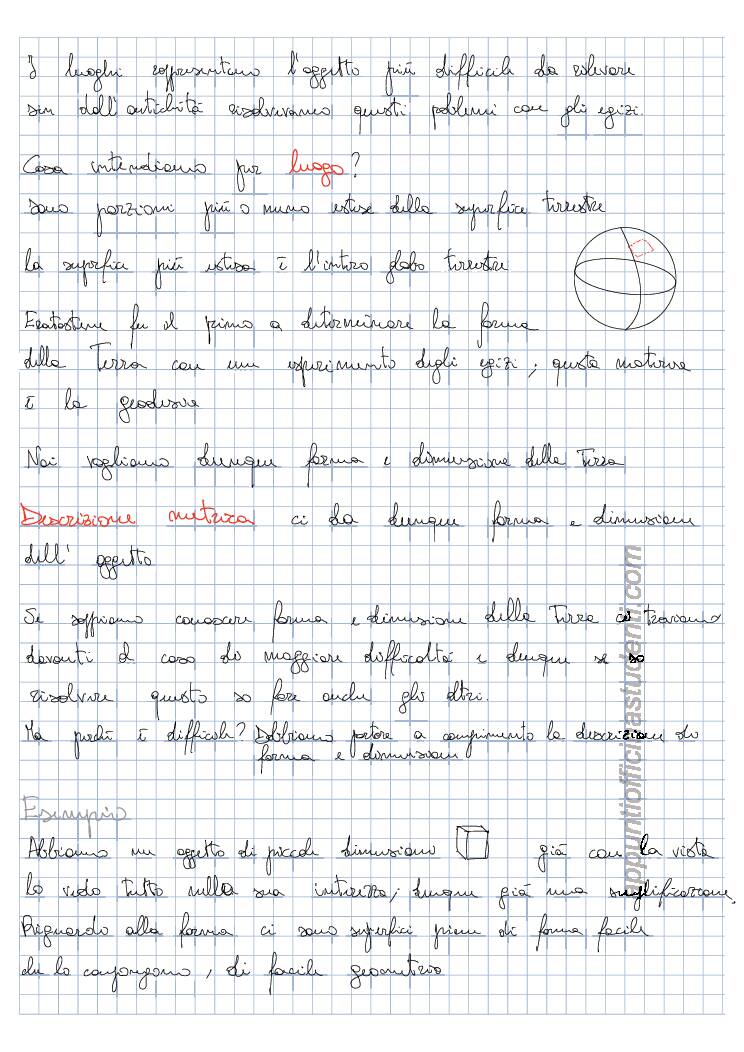 I luoghi rappresentano l'oggetto più difficile da rilevare
sin dall'antichità risolvevamo questi problemi con gli egizi.
Cosa intendiamo per luogo?
sono porzioni più o meno estese della superficie terrestre
La superficie più estesa è l'intero globo terrestre
Eratostene fu il primo a determinare la forma
della Terra con un esperimento degli egizi; questa materia
è la geodesia
Noi vogliamo dunque forma e dimensione della Terra
Descrizione metrica ci da dunque forma e dimensioni
dell'oggetto
Se sappiamo conoscere forma e dimensioni della Terra ci troviamo
davanti il caso di maggiore difficoltà e dunque se so
risolvere questo so fare anche gli altri.
Ma perché è difficile? Dobbiamo portare a compimento la descrizione di
forma e dimensioni
Esempio
Abbiamo un oggetto di piccole dimensioni già con la vista
lo vedo tutto nella sua interezza, dunque già una semplificazione,
Riguardo alla forma ci sono superfici piane di forma facile
che lo compongono, di facile geometria
appuntiofficinastudenti.com